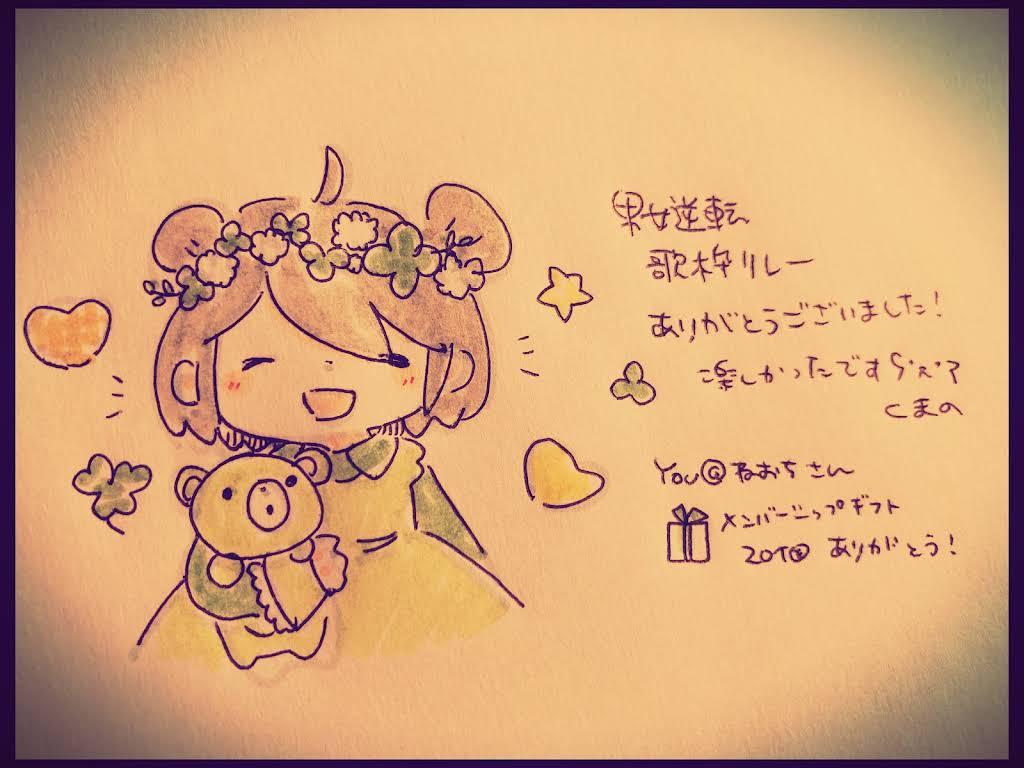 男女逆転
歌枠リレー
ありがとうございました!
楽しかったです
くまの
You@ねおちさん
メンバーシップギフト
ありがとう!